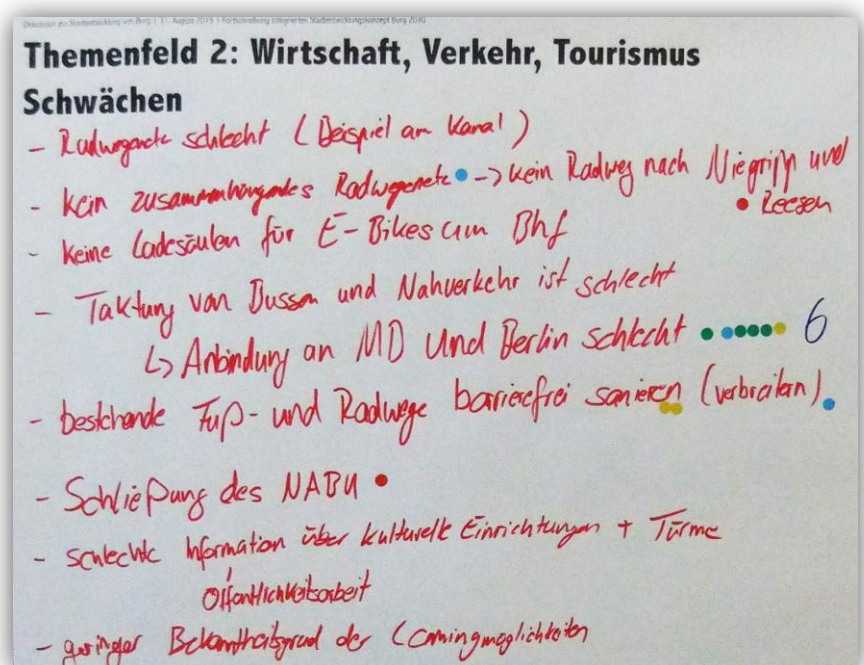 Diskussion zur Stadtentwicklung von Burg | 31. August 2019 | Fortschreibung Integriertes Stadtentwicklungskonzept Burg 2030
Themenfeld 2: Wirtschaft, Verkehr, Tourismus
Schwächen
- Radwegenetz schlecht (Beispiel am Kanal)
- kein zusammenhängendes Radwegenetz -> kein Radweg nach Niegripp und
Reesen
- keine Ladesäulen für E-Bikes am Bhf
- Taktung von Bussen und Nahverkehr ist schlecht
↳ Anbindung an MD und Berlin schlecht 6
- bestehende Fuß- und Radwege barrierefrei sanieren (verbreitern)
- Schließung des NABU
- schlechte Information über kulturelle Einrichtungen + Türme
Öffentlichkeitsarbeit
- geringer Bekanntheitsgrad der